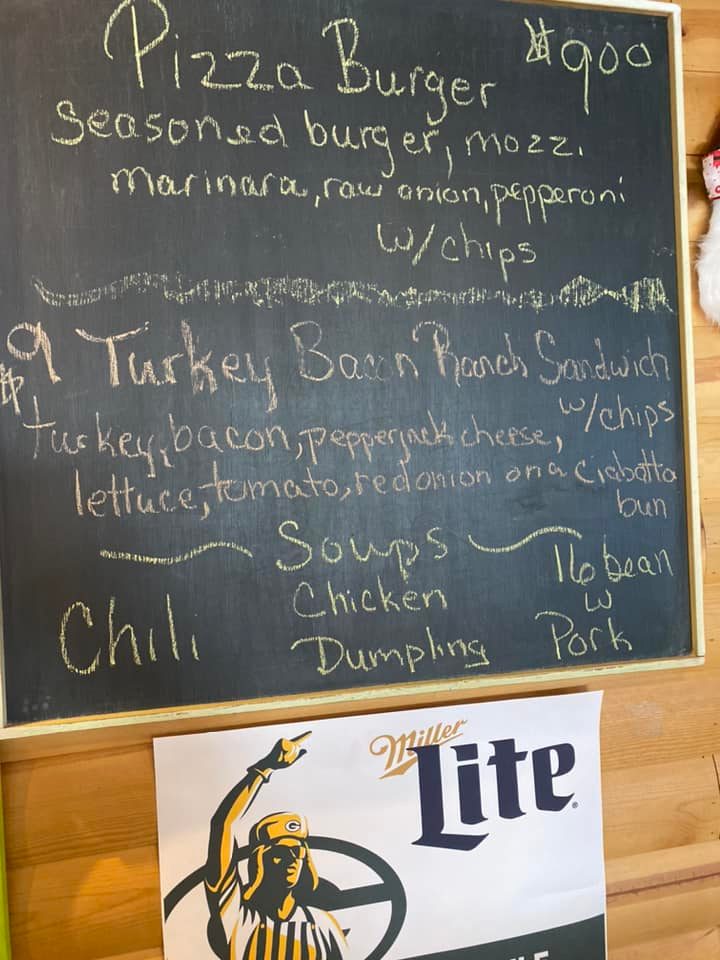 Pizza Burger $900
seasoned burger, mozz.
marinara, raw onion, pepperoni
w/chips
$9 Turkey Bacon Ranch Sandwich
w/chips
turkey, bacon, pepperjack cheese,
lettuce, tomato, red onion on a ciabatta
bun
Soups
Chili
Chicken
Dumpling
16 bean
w
Pork
Miller
Lite
G